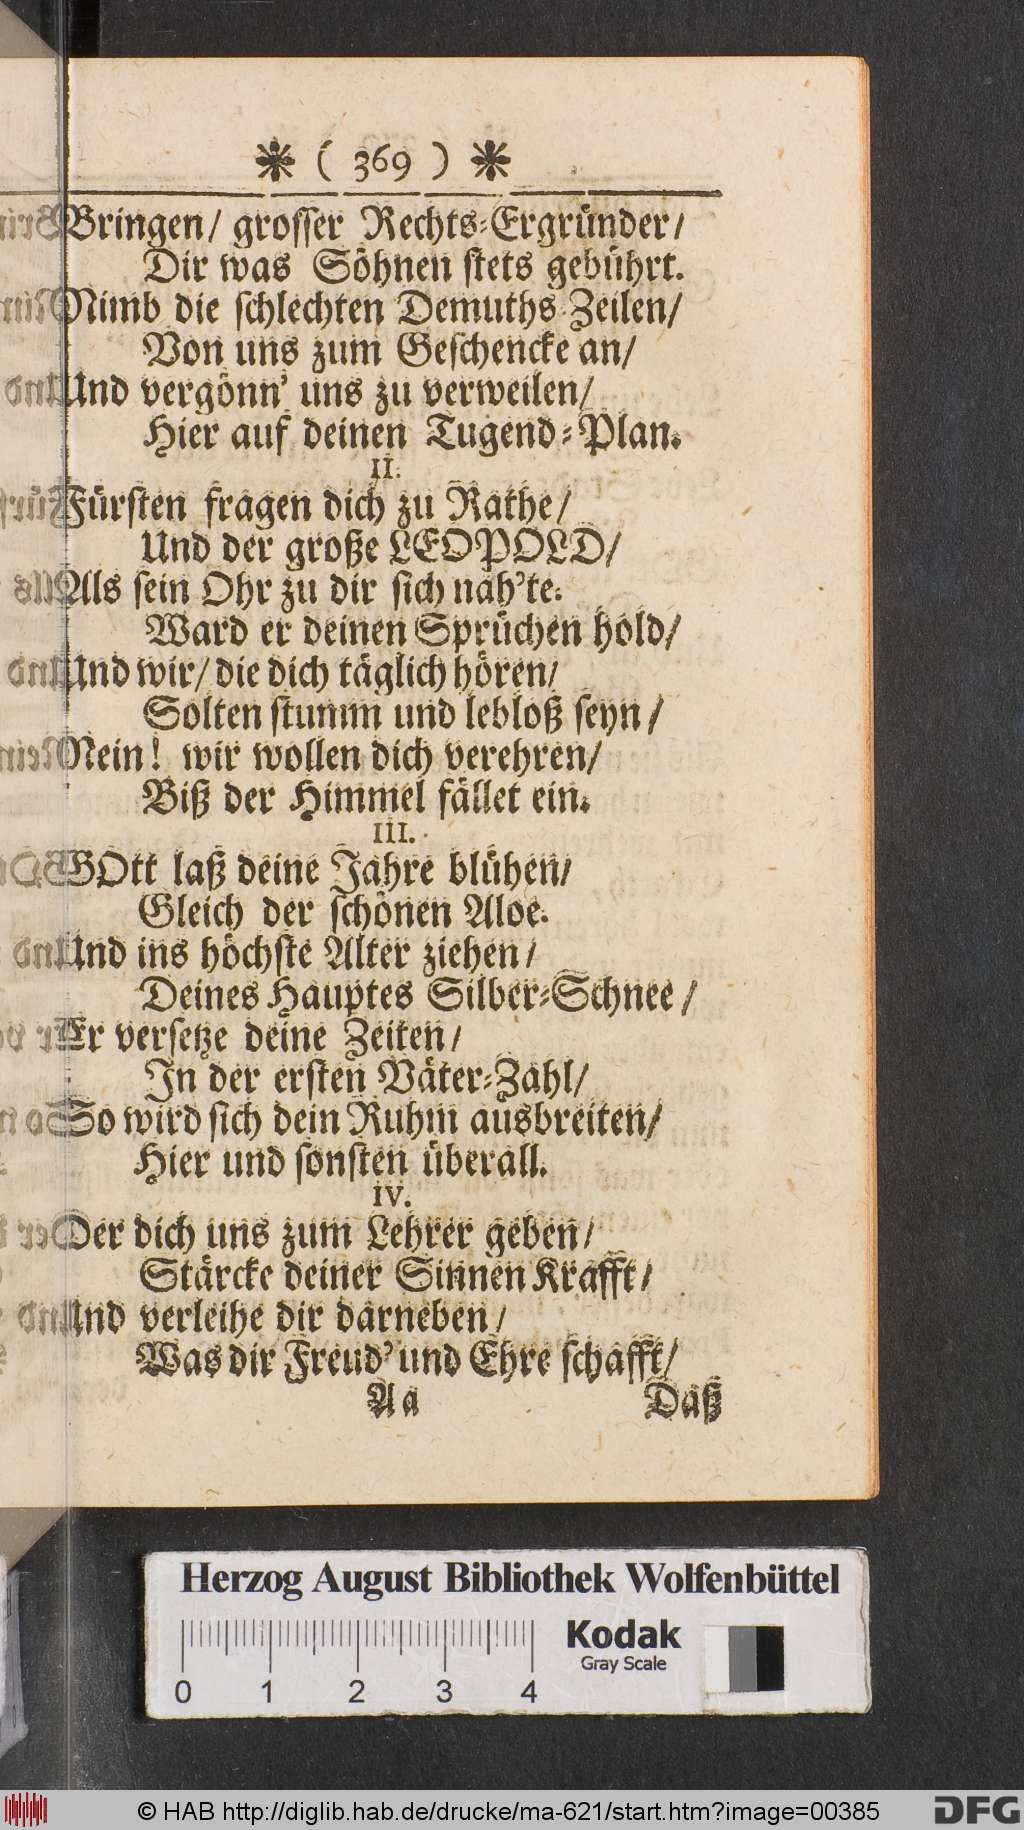 * ( 369 ) *
Bringen/ grosser Rechts-Ergründer/
Dir was Söhnen stets gebührt.
Nimb die schlechten Demuths-Zeilen/
Von uns zum Geschencke an/
Und vergönn' uns zu verweilen/
Hier auf deinen Tugend-Plan.
II.
Fürsten fragen dich zu Rathe/
Und der große LEOPOLD/
Als sein Ohr zu dir sich näh'te.
Ward er deinen Sprüchen hold/
Und wir/ die dich täglich hören/
Solten stumm und lebloß seyn/
Nein! wir wollen dich verehren/
Biß der Himmel fället ein.
III.
GOtt laß deine Jahre blühen/
Gleich der schönen Aloe.
Und ins höchste Alter ziehen/
Deines Hauptes Silber-Schnee/
Er versetze deine Zeiten/
In der ersten Väter-Zahl/
So wird sich dein Ruhm ausbreiten/
Hier und sonsten überall.
IV.
Der dich uns zum Lehrer geben/
Stärcke deiner Sinnen Krafft/
Und verleihe dir darneben/
Was dir Freud' und Ehre schafft/
Aa Daß
Herzog August Bibliothek Wolfenbüttel
Kodak
Gray Scale
0 1 2 3 4
© HAB http://diglib.hab.de/drucke/ma-621/start.htm?image=00385
DFG